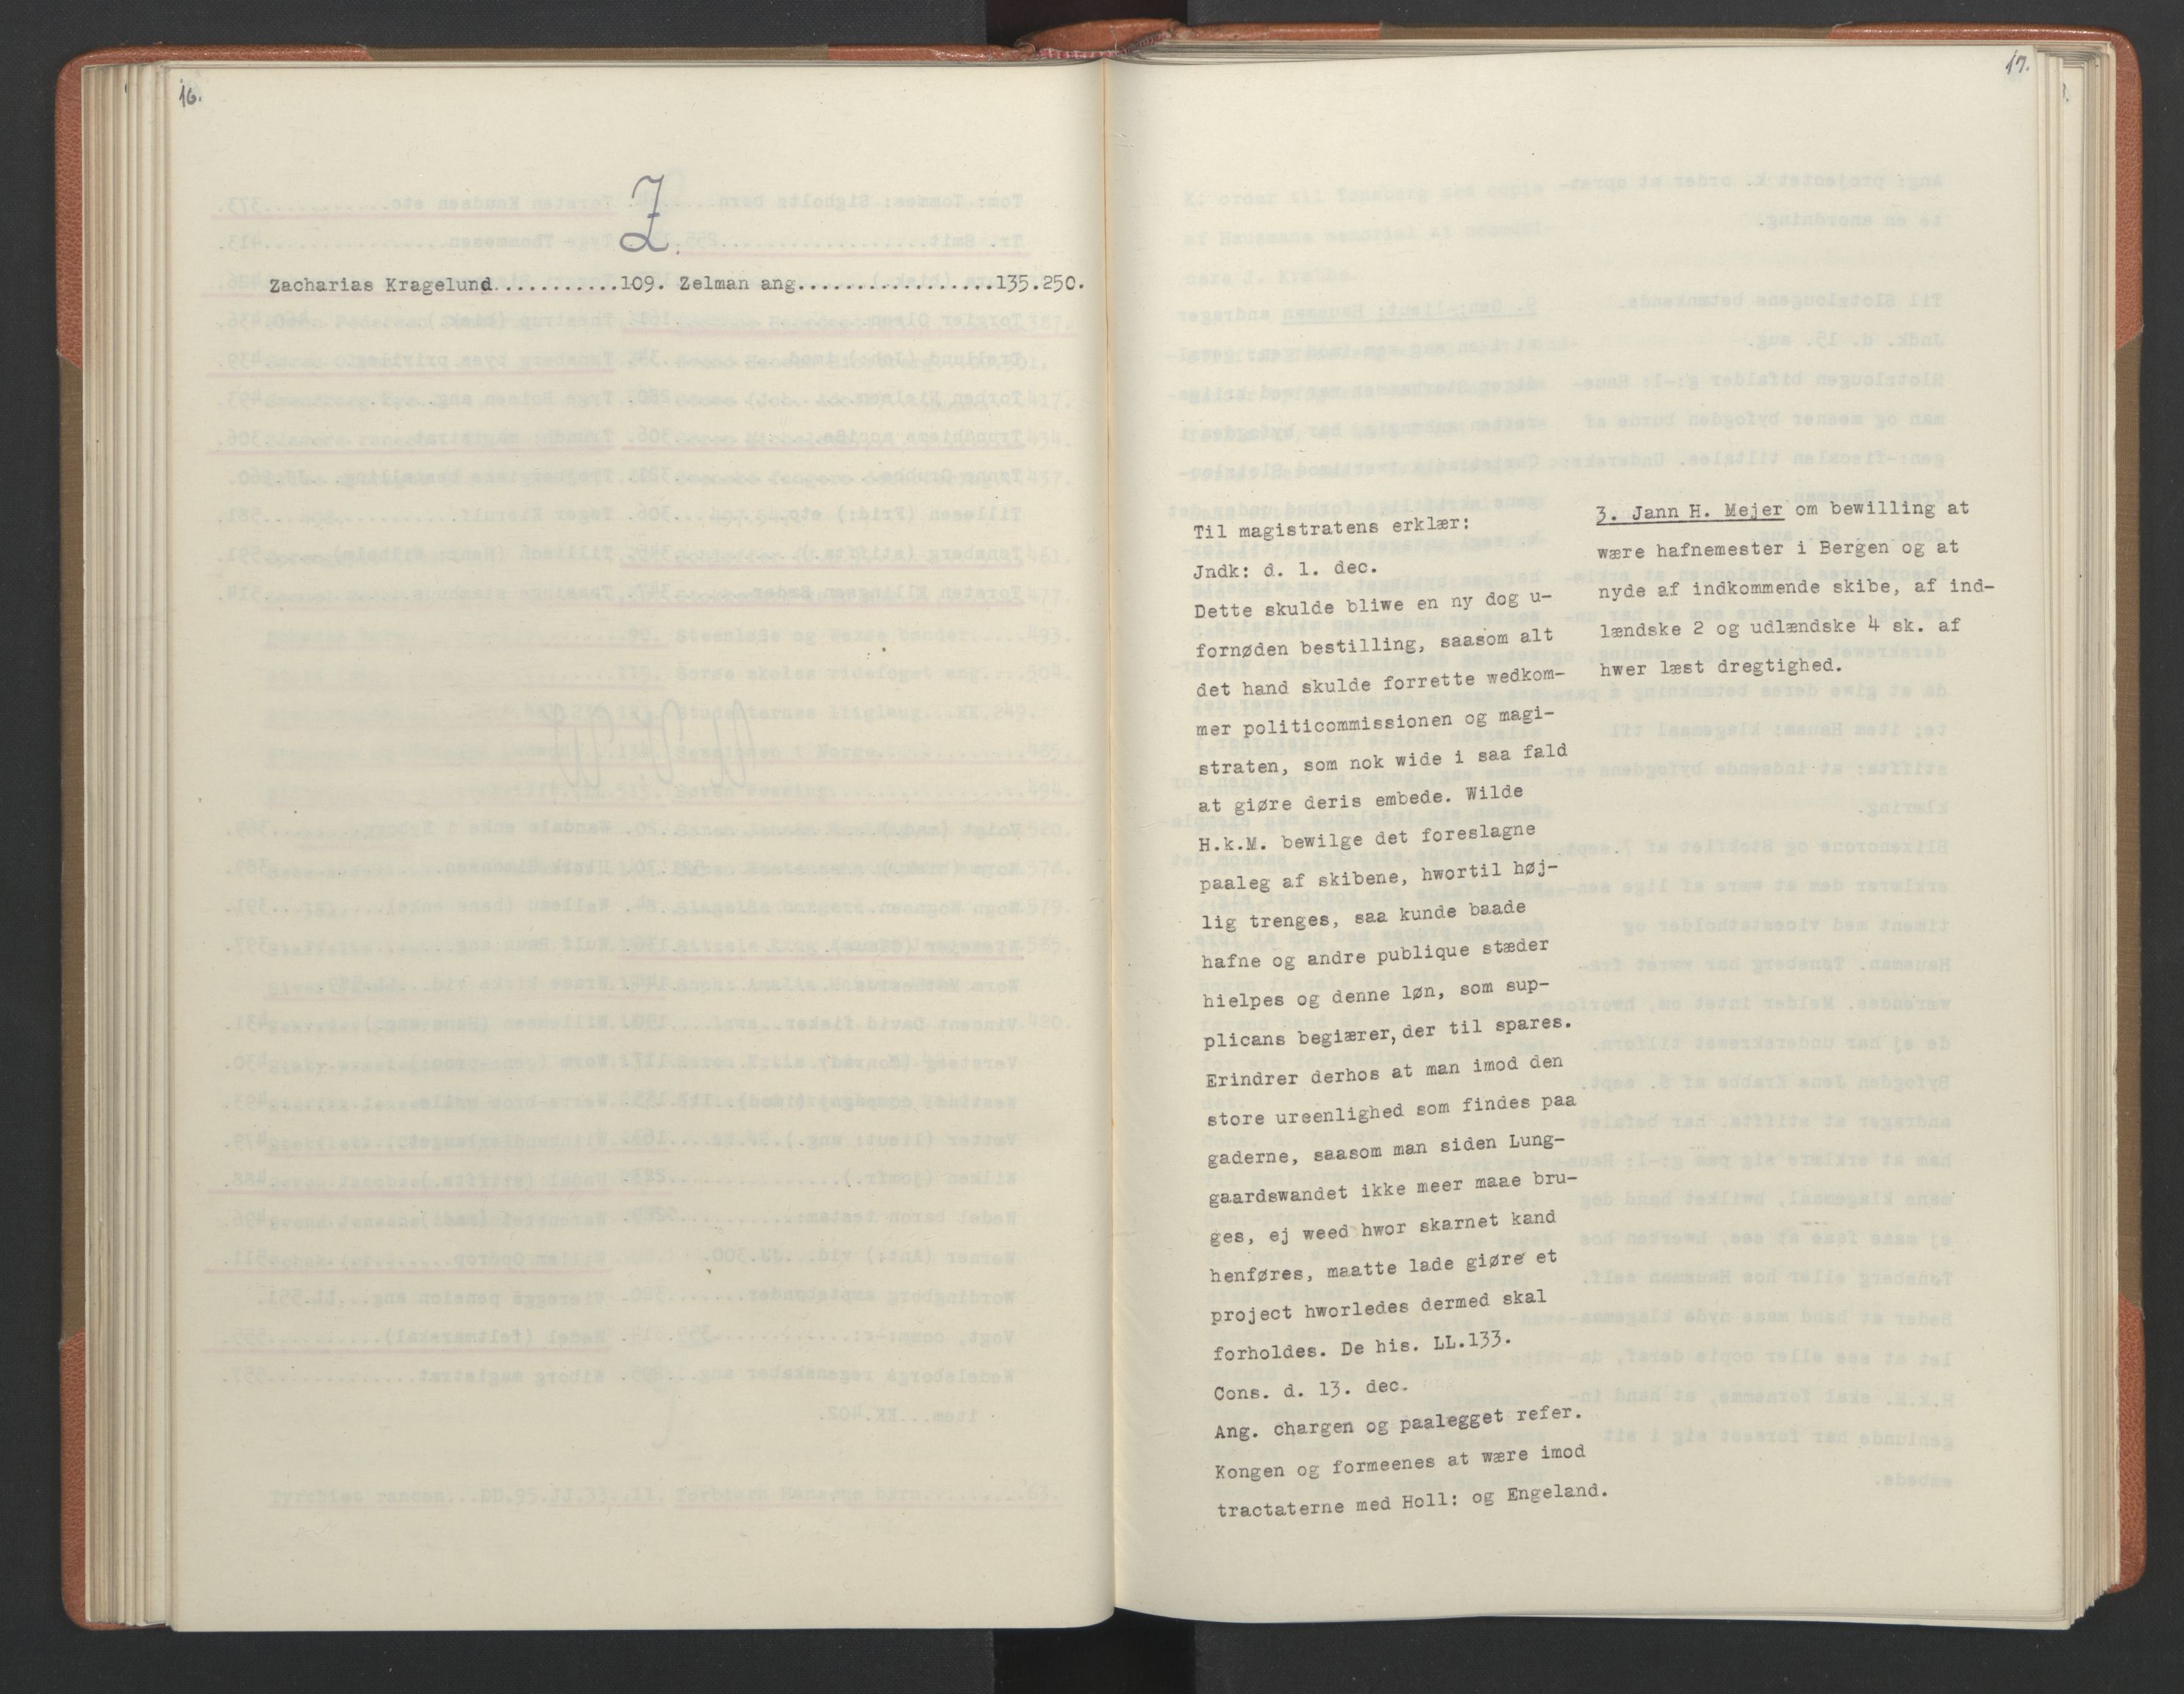 16.
Z.
Zacharias Kragelund...........109. Zelman ang..................135.250.
17.
Til magistratens erklær:
Jndk: d. 1. dec.
Dette skulde bliwe en ny dog u-
fornøden bestilling, saasom alt
det hand skulde forrette wedkom-
mer politicommissionen og magi-
straten, som nok wide i saa fald
at giøre deris embede. Wilde
H.k.M. bewilge det foreslagne
paaleg af skibene, hwortil høj-
lig trenges, saa kunde baade
hafne og andre publique stæder
hielpes og denne løn, som sup-
plicans begiærer, der til spares.
Erindrer derhos at man imod den
store ureenlighed som findes paa
gaderne, saasom man siden Lung-
gaardswandet ikke meer maae bru-
ges, ej weed hwor skarnet kand
henføres, maatte lade giøre et
project hworledes dermed skal
forholdes. De his. LL.133.
Cons. d. 13. dec.
Ang. chargen og paalegget refer.
Kongen og formeenes at wære imod
tractaterne med Holl: og Engeland.
3. Jann H. Mejer om bewilling at
wære hafnemester i Bergen og at
nyde af indkommende skibe, af ind-
lændske 2 og udlændske 4 sk. af
hwer læst dregtighed.